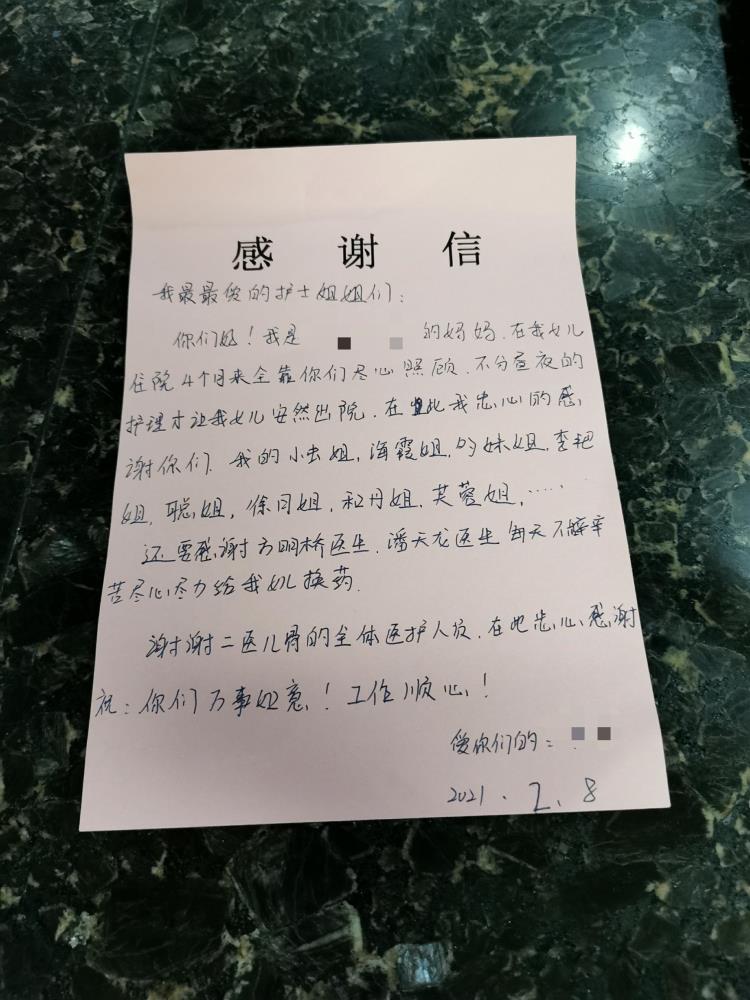 感谢信
我最最最的护士姐姐们:
你们好!我是 的妈妈.在我女儿
住院4个月来全靠你们尽心照顾.不分昼夜的
护理才让我女儿安然出院.在此我忠心的感
谢你们.我的小虫姐,海霞姐,妹姐,李艳
姐,聪姐,徐月姐,和丹姐,芙蓉姐,……
还要感谢方明桥医生.潘天龙医生每天不辞辛
苦尽心尽力给我女儿换药.
谢谢二医儿骨的全体医护人员.在此忠心感谢
祝:你们万事如意!工作顺心!
爱你们的:
2021.2.8